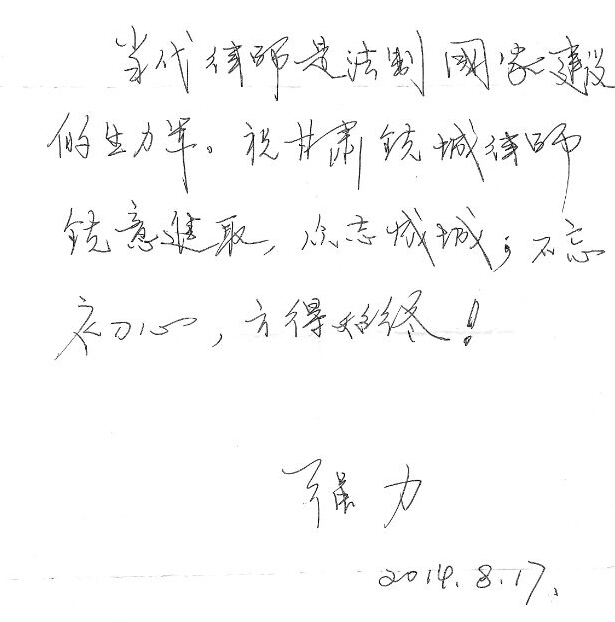 当代律师是法制國家建设
的生力军。祝甘肃锐城律师
锐意進取，众志成城；不忘
初心，方得始终！
力
2014.8.17.